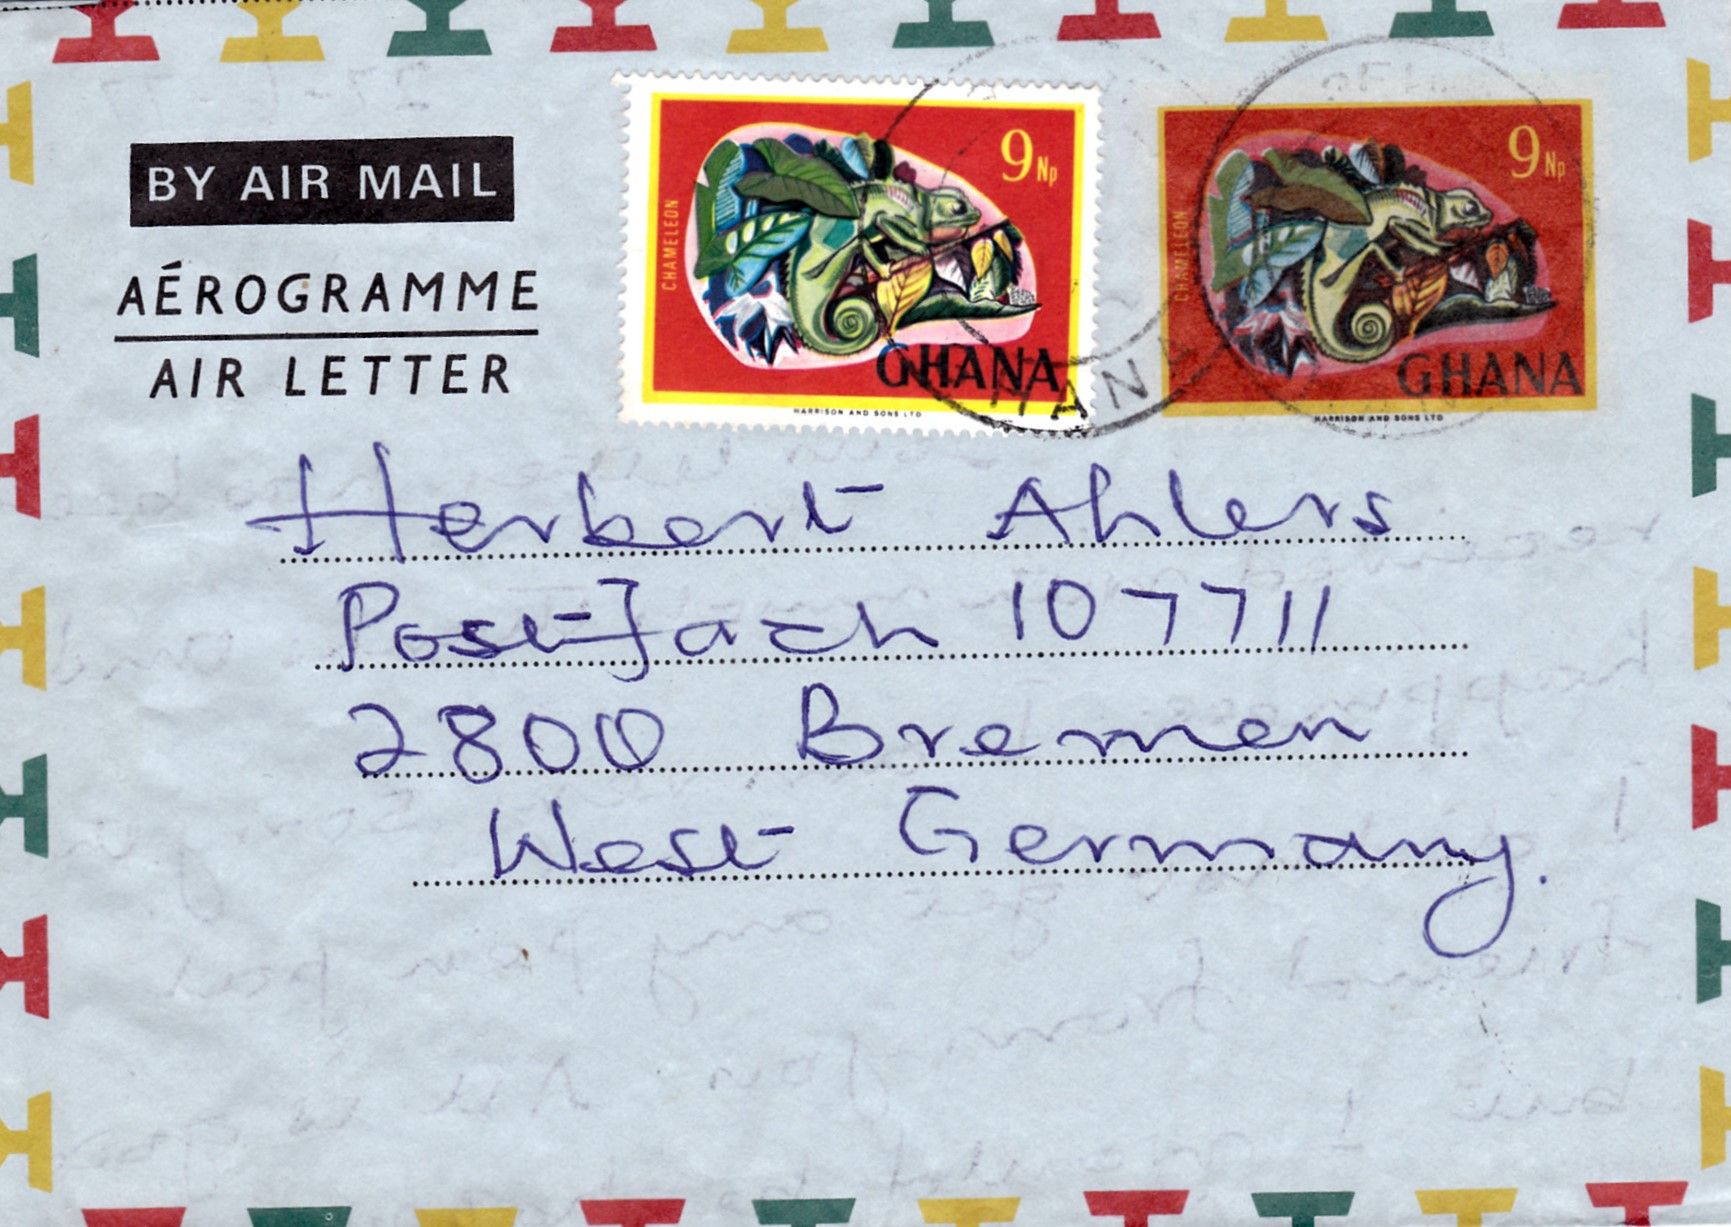 BY AIR MAIL
AÉROGRAMME
AIR LETTER
9 Np
CHAMELEON
GHANA
HARRISON AND SONS LTD
9 Np
CHAMELEON
GHANA
HARRISON AND SONS LTD
Herbert Ahlers
Post-fach 107711
2800 Bremen
West Germany.